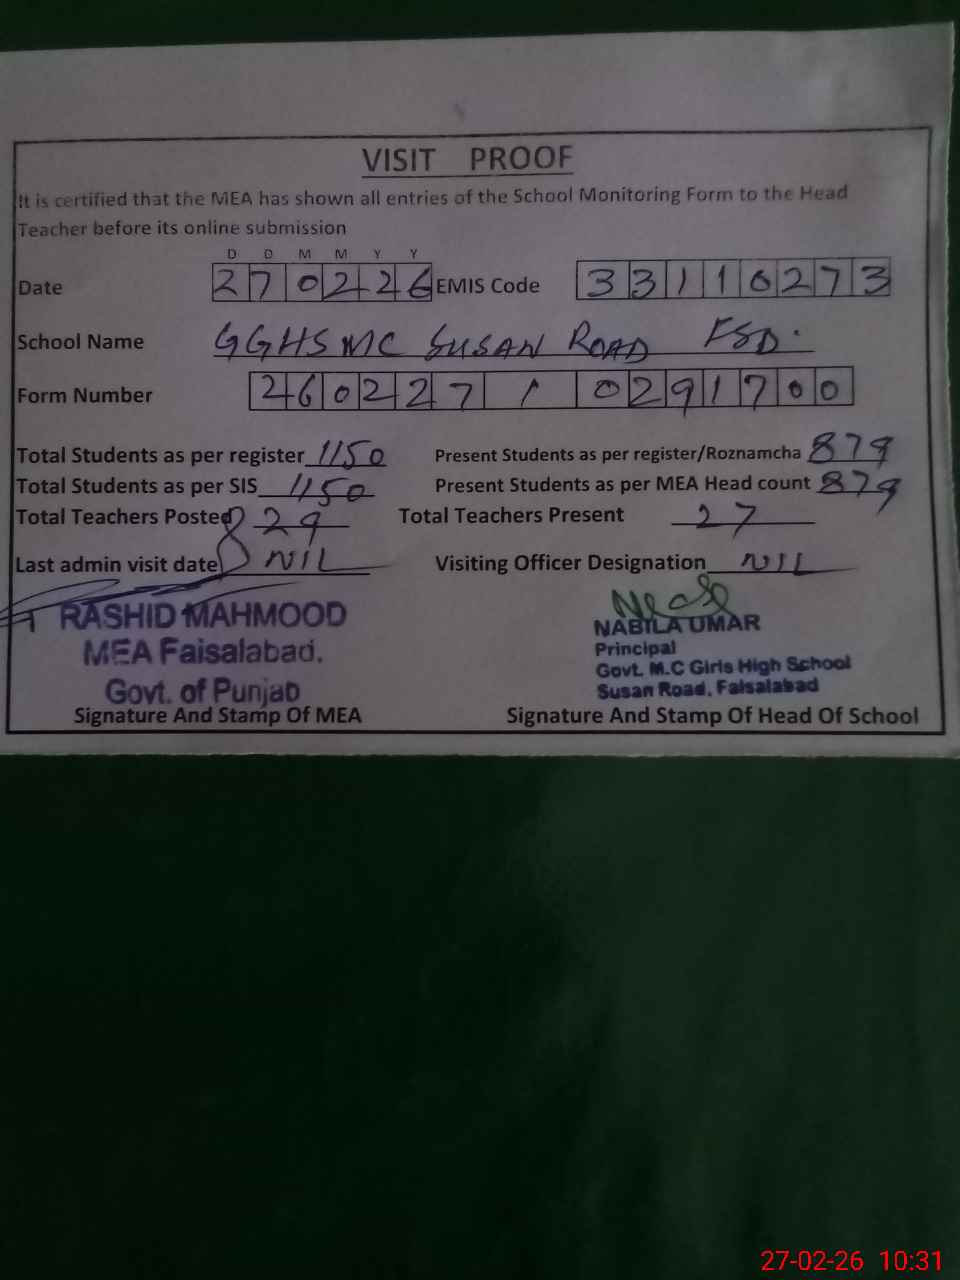 VISIT PROOF
It is certified that the MEA has shown all entries of the School Monitoring Form to the Head
Teacher before its online submission
D D M M Y Y
Date 270226 EMIS Code 33110273
School Name GGHS MC SUSAN ROAD FSD.
Form Number 260227/0291700
Total Students as per register 1150 Present Students as per register/Roznamcha 879
Total Students as per SIS 1150 Present Students as per MEA Head count 879
Total Teachers Posted 29 Total Teachers Present 27
Last admin visit date NIL Visiting Officer Designation NIL
RASHID MAHMOOD
MEA Faisalabad.
Govt. of Punjab
Signature And Stamp Of MEA
NABILA UMAR
Principal
Govt. M.C Girls High School
Susan Road, Faisalabad
Signature And Stamp Of Head Of School
27-02-26 10:31